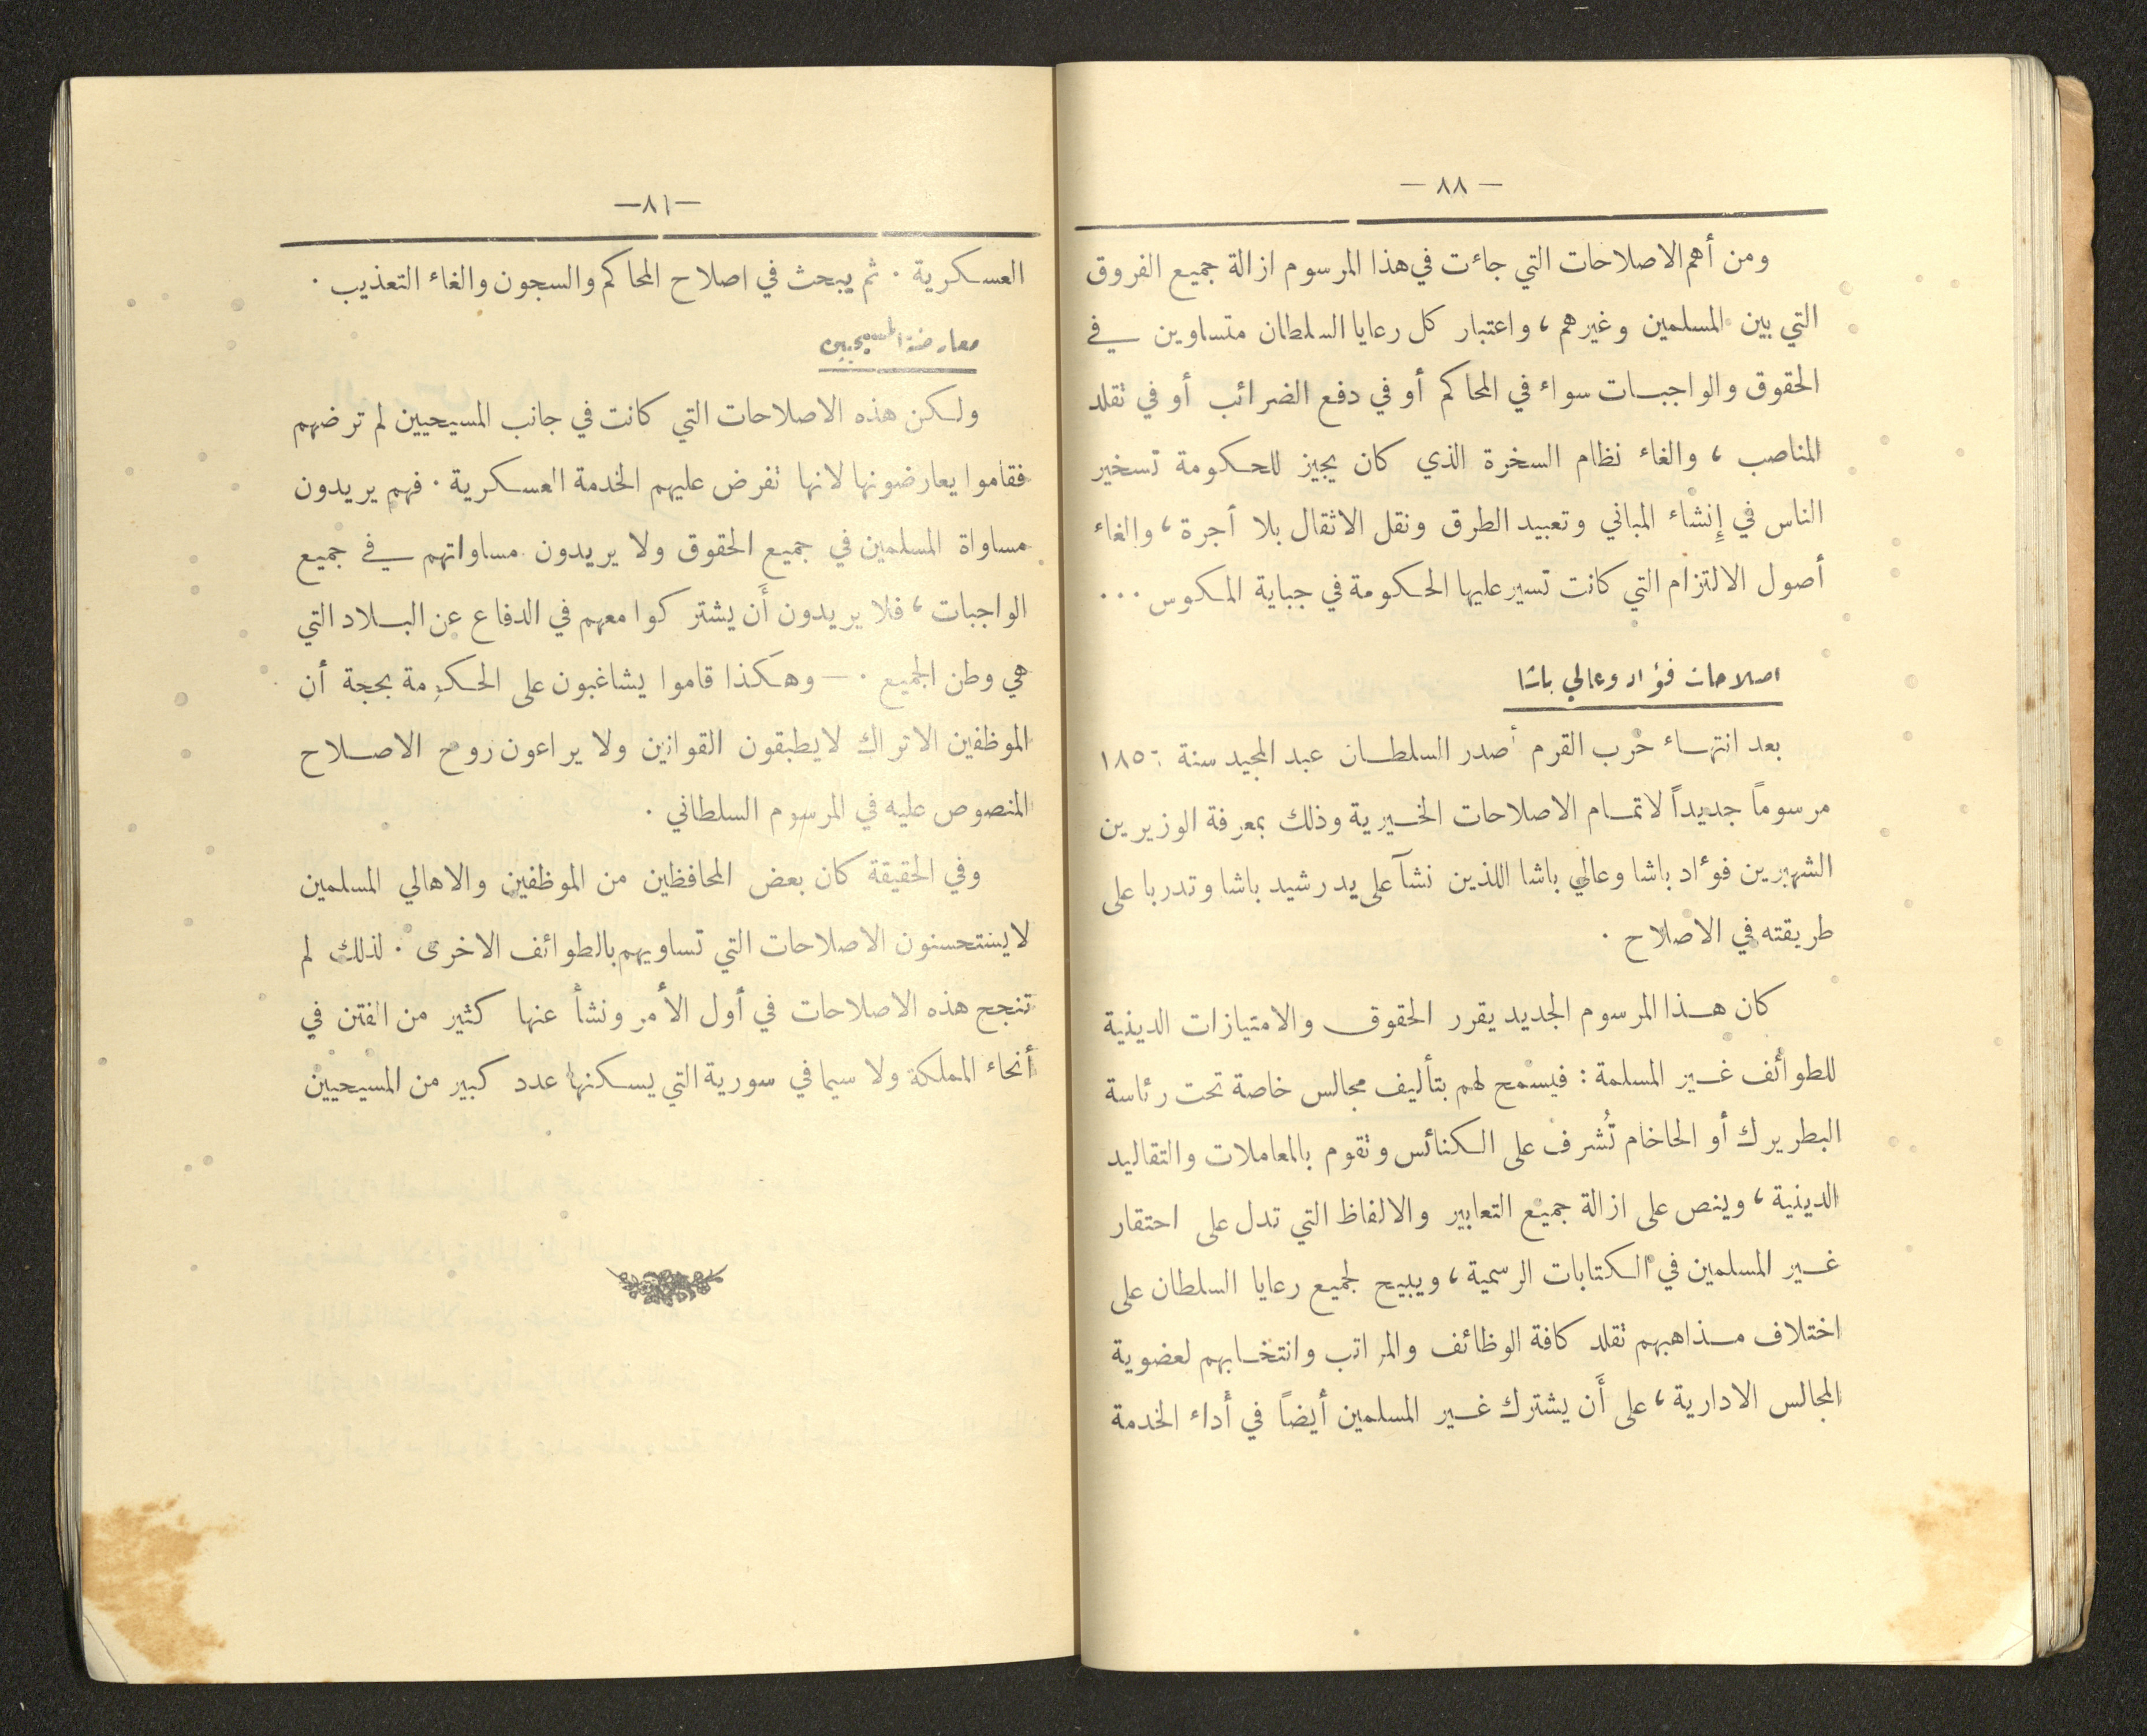 — ٨٨ —
ومن أهم الاصلاحات التي جاءت في هذا المرسوم ازالة جميع الفروق
التي بين المسلمين وغيرهم ، واعتبار كل رعايا السلطان متساوين في
الحقوق والواجبات سواء في المحاكم أو في دفع الضرائب أو في تقلد
المناصب ، والغاء نظام السخرة الذي كان يجيز للحكومة تسخير
الناس في إِنشاء المباني وتعبيد الطرق ونقل الاثقال بلا أجرة ، والغاء
أصول الالتزام التي كانت تسير عليها الحكومة في جباية المكوس ...
اصلاحات فؤاد وعالي باشا
بعد انتهاء حرب القرم أصدر السلطان عبد المجيد سنة
مرسوماً جديداً لاتمام الاصلاحات الخيرية وذلك بمعرفة الوزيرين
الشهيرين فؤاد باشا وعالي باشا اللذين نشآ على يد رشيد باشا وتدربا على
طريقته في الاصلاح .
كان هذا المرسوم الجديد يقرر الحقوق والامتيازات الدينية
للطوائف غير المسلمة : فيسمح لهم بتأليف مجالس خاصة تحت رئاسة
البطريرك أو الحاخام تُشرف على الكنائس وتقوم بالمعاملات والتقاليد
الدينية ، وينص على ازالة جميع التعابير والالفاظ التي تدل على احتقار
غير المسلمين في الكتابات الرسمية ، ويبيح لجميع رعايا السلطان على
اختلاف مذاهبهم تقلد كافة الوظائف والمراتب وانتخابهم لعضوية
المجالس الادارية ، على أَن يشترك غير المسلمين أيضاً في أداء الخدمة
—٨١—
العسكرية . ثم يبحث في اصلاح المحاكم والسجون والغاء التعذيب .
معارضة المسيحيين
ولكن هذه الاصلاحات التي كانت في جانب المسيحيين لم ترضهم
فقاموا يعارضونها لانها تفرض عليهم الخدمة العسكرية . فهم يريدون
مساواة المسلمين في جميع الحقوق ولا يريدون مساواتهم في جميع
الواجبات ، فلا يريدون أَن يشتركوا معهم في الدفاع عن البلاد التي
هي وطن الجميع . — وهكذا قاموا يشاغبون على الحكومة بحجة أن
الموظفين الاتراك لا يطبقون القوانين ولا يراعون روح الاصلاح
المنصوص عليه في المرسوم السلطاني .
وفي الحقيقة كان بعض المحافظين من الموظفين والاهالي المسلمين
لا يستحسنون الاصلاحات التي تساويهم بالطوائف الاخرى . لذلك لم
تنجح هذه الاصلاحات في أول الأمر ونشأ عنها كثير من الفتن في
أنحاء المملكة ولا سيما في سورية التي يسكنها عدد كبير من المسيحيين